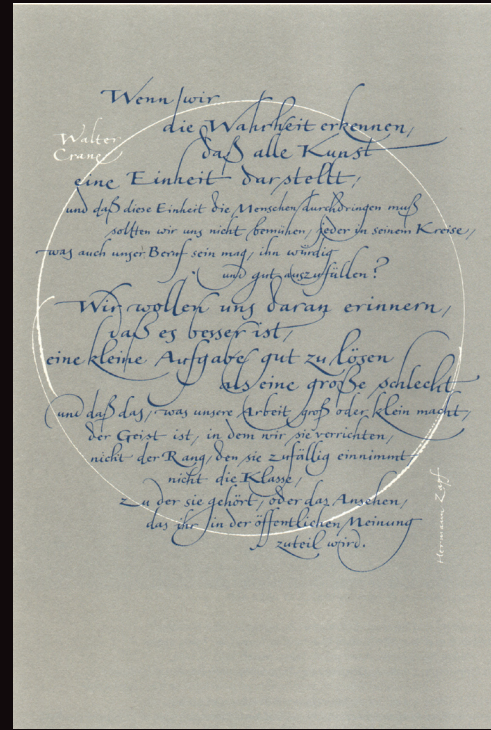 Wenn wir
die Wahrheit erkennen,
Walter
Crane
daß alle Kunst
eine Einheit darstellt,
und daß diese Einheit die Menschen durchdringen muß
sollten wir uns nicht bemühen, jeder in seinem Kreise,
was auch unser Beruf sein mag, ihn würdig
und gut auszufüllen?
Wir wollen uns daran erinnern,
daß es besser ist,
eine kleine Aufgabe gut zu lösen
als eine große schlecht
und daß das, was unsere Arbeit groß oder klein macht,
der Geist ist, in dem wir sie verrichten,
nicht der Rang, den sie zufällig einnimmt
nicht die Klasse,
zu der sie gehört, oder das Ansehen,
das ihr in der öffentlichen Meinung
zuteil wird.
Hermann Zapf